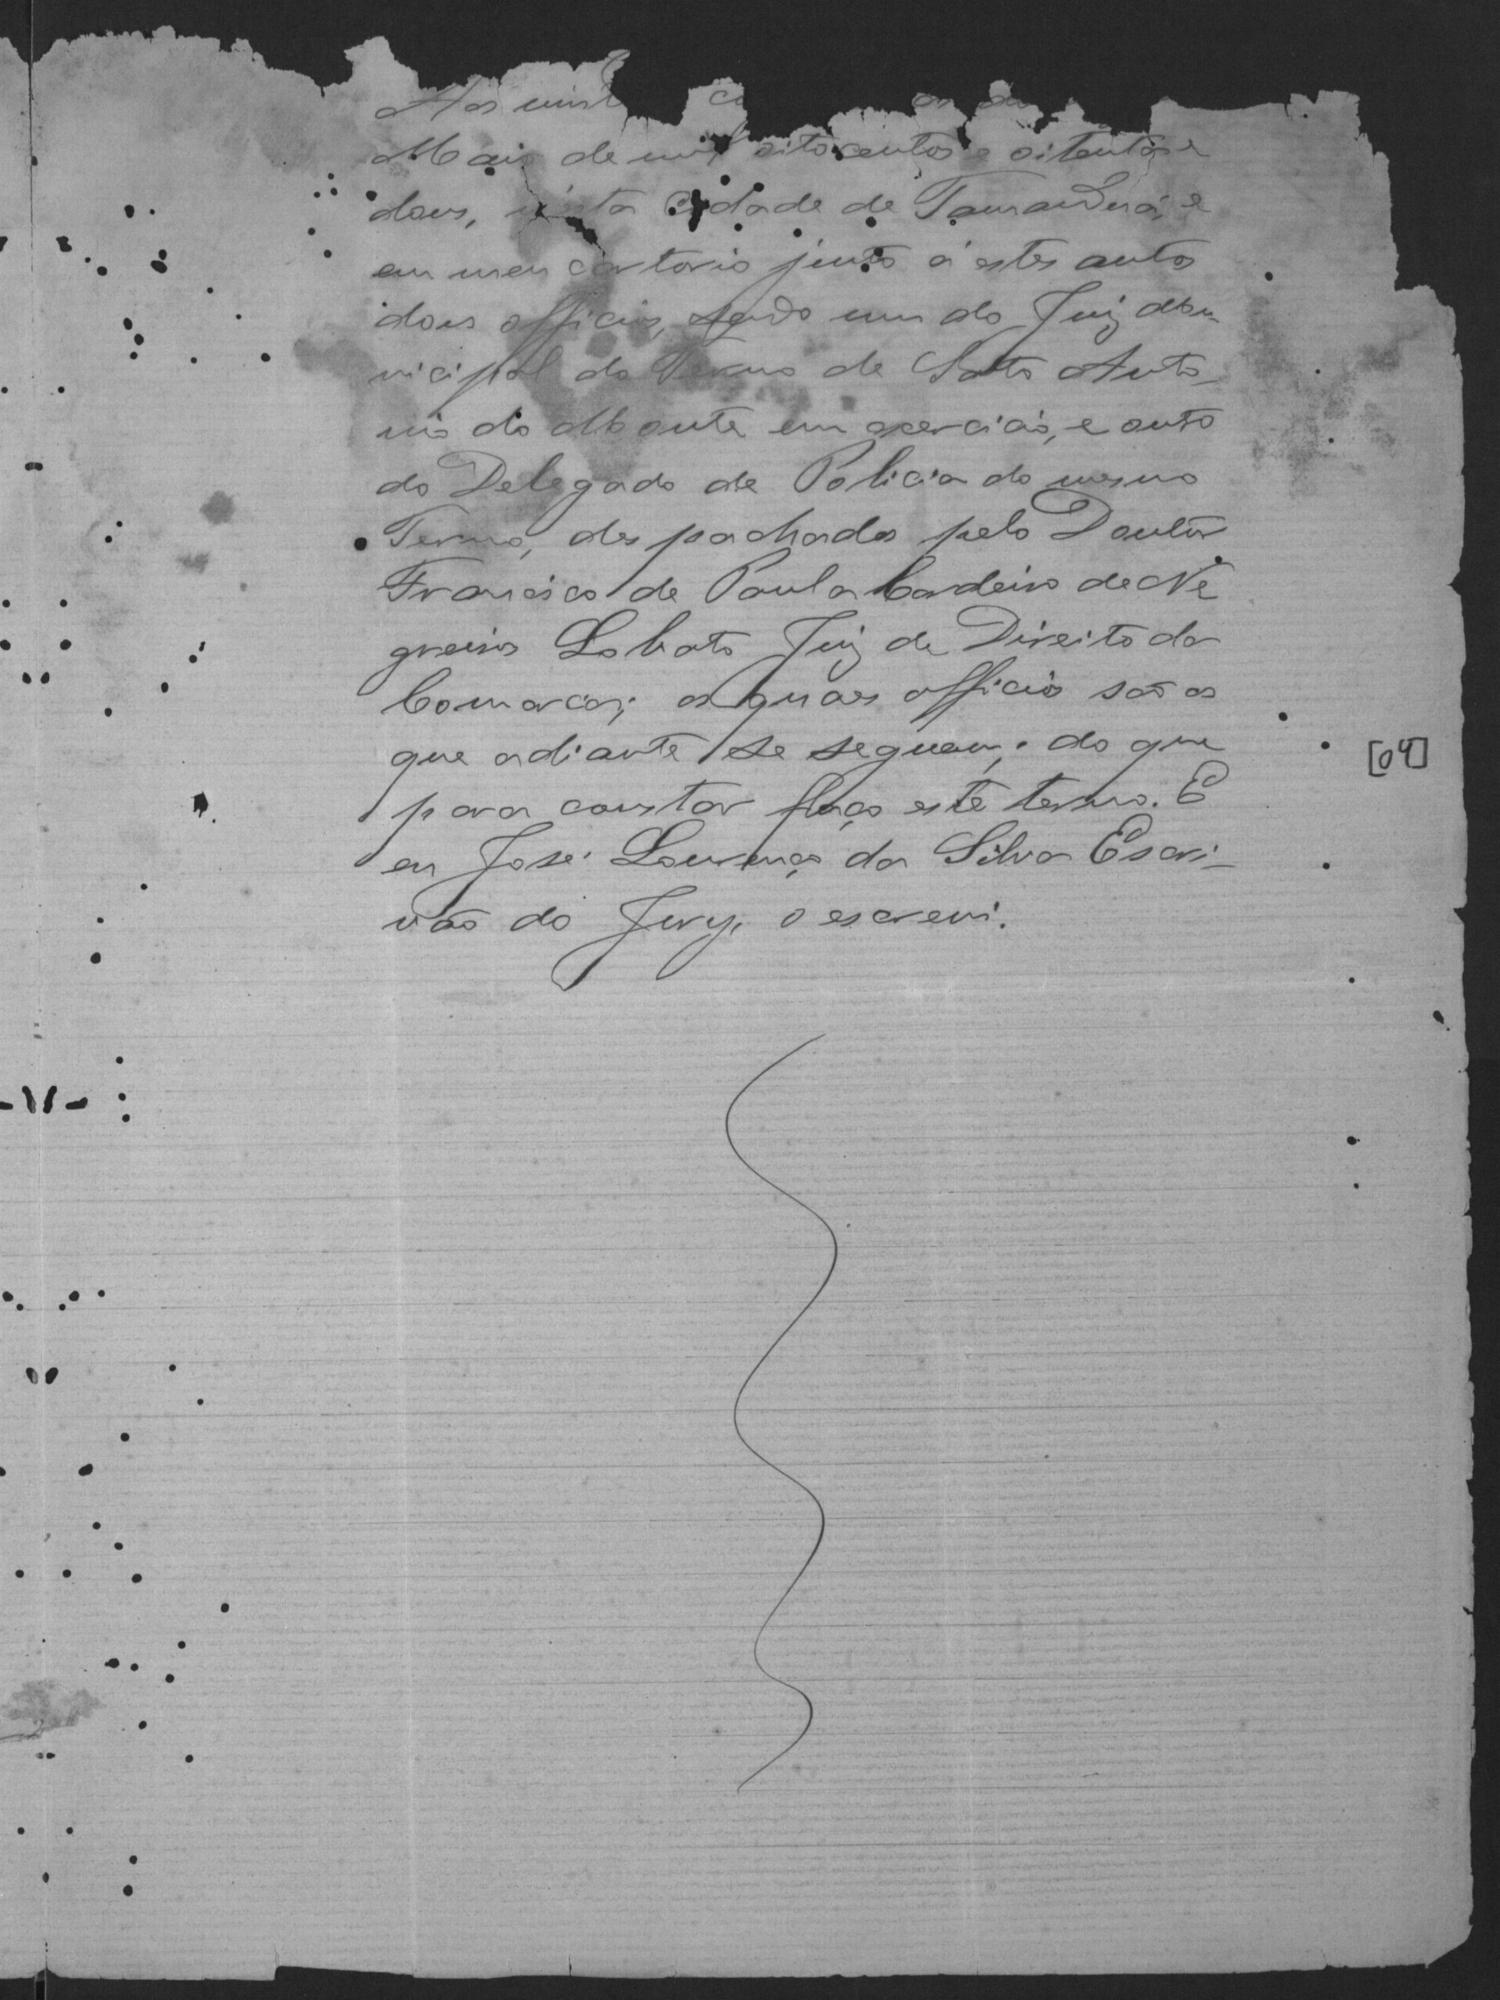 Aos
Maio de mil oitocentos e oitenta e
dous, nesta Cidade de Tamanduá, e
em meu cartorio junto á estes autos
dous officios, sendo um do Juiz Mu
nicipal do Termo de Santo Anto_
nio do Monte em exercicio, e outro
do Delegado de Policia do mesmo
Termo, despachados pelo Doutor
Francisco de Paula Cordeiro de Ne
greiros Lobato Juiz de Direito da
Comarca; os quaes officios são os
que adiante se seguem; do que
para constar faço este termo. E
eu José Lourenço da Silva Escri_
vão do Jury, o escrevi.
[04]